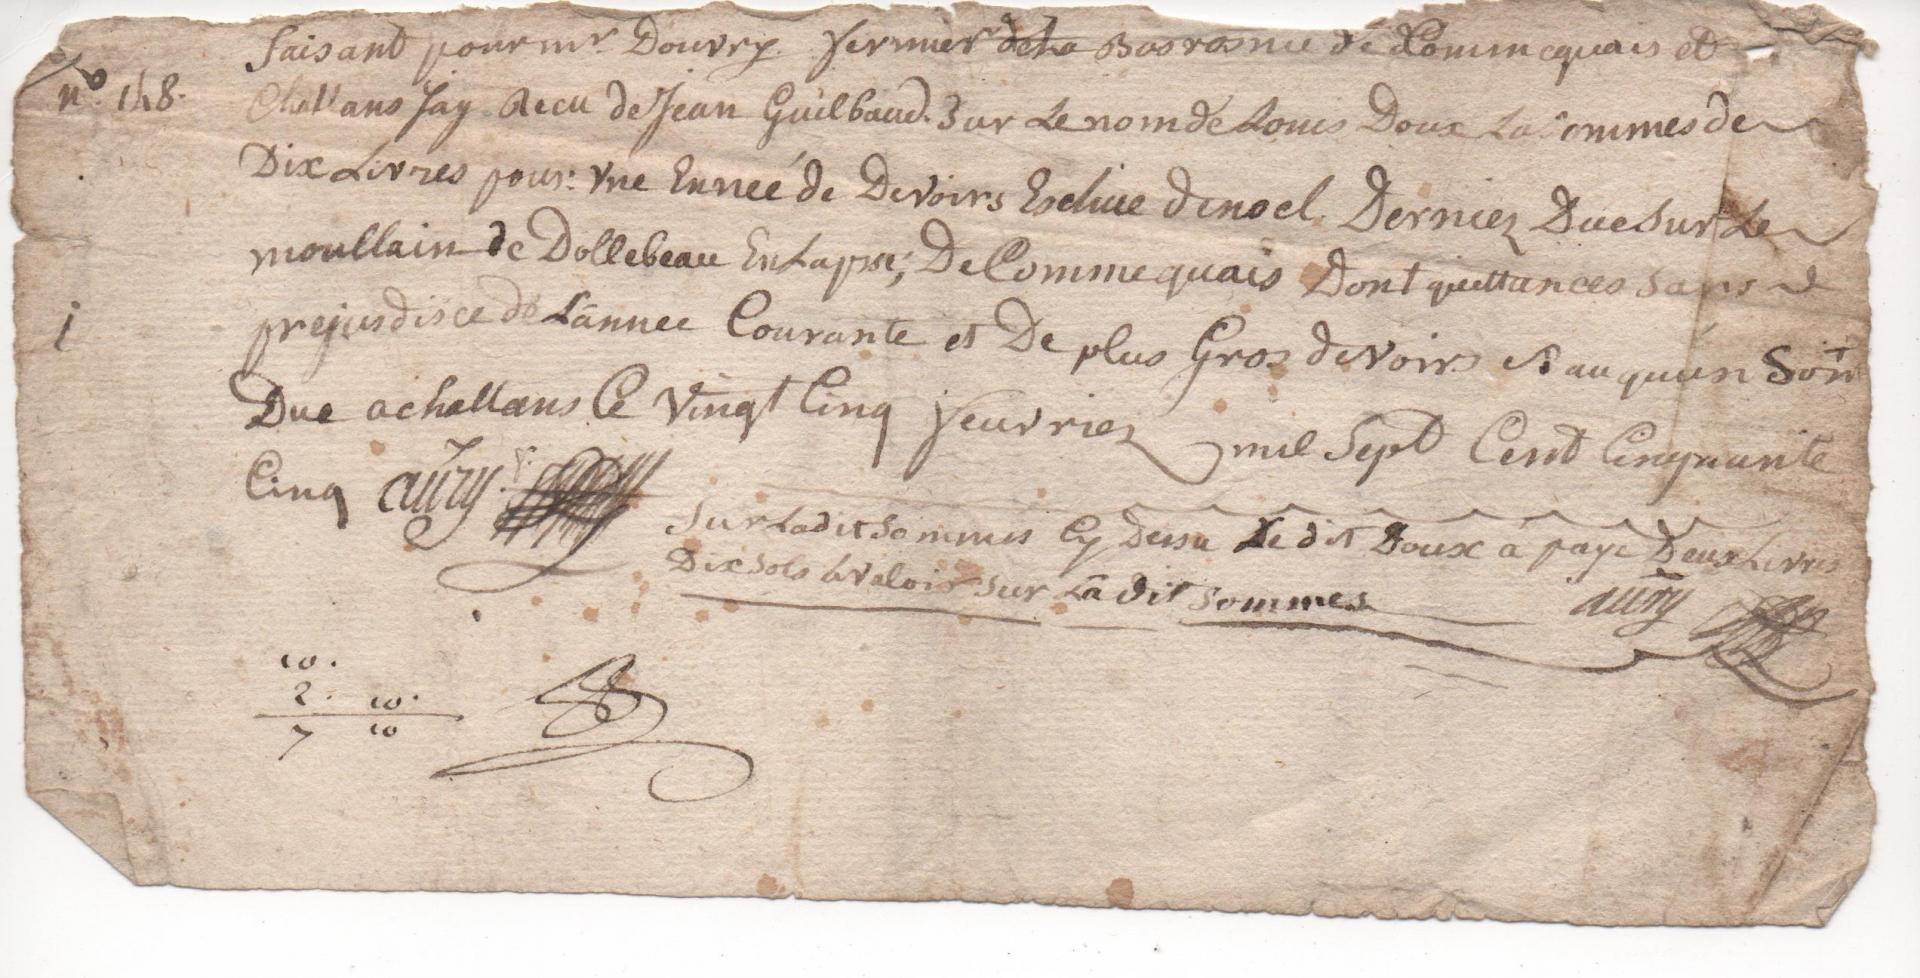 faisant pour mr Douvry fermier de la Baronnie de Commequais et
n° 148.
Challans Jay Recu de Jean Guilbaud Sur Le nom de Louis Doux La Sommes de
Dix Livres pour vne Ennee de Devoirs Escheue de noel Dernier Due Sur Le
moullain de Dollebeau En Lapsse De Commequais Dont quittances Sans
prejusdisce de Lannee Courante et De plus Gros devoirs Si auquun Sont
i
Due a challans Ce Vingt Cinq feuvrier mil Sept Cent Cinquante
Cinq aury
Sur La dit Sommes Cy Dessu Le dit Doux a paye Deux Livres
Dix Sols a Valoir Sur La dit Sommes aury
10.
2. 10.
7 10